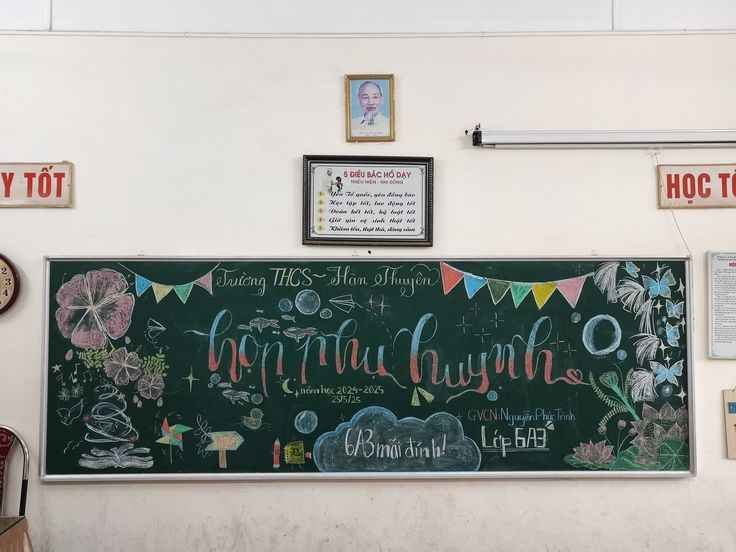 Y TỐT
5 ĐIỀU BÁC HỒ DẠY
THIẾU NIÊN - NHI ĐỒNG
1 Yêu Tổ quốc, yêu đồng bào
2 Học tập tốt, lao động tốt
3 Đoàn kết tốt, kỷ luật tốt
4 Giữ gìn vệ sinh thật tốt
5 Khiêm tốn, thật thà, dũng cảm
HỌC TỐ
Trường THCS ~ Hàn Thuyên
họp phụ huynh
năm học 2024-2025
25/5/25
GVCN: Nguyễn Phúc Trinh
Lớp 6A3
6A3 mãi đỉnh!